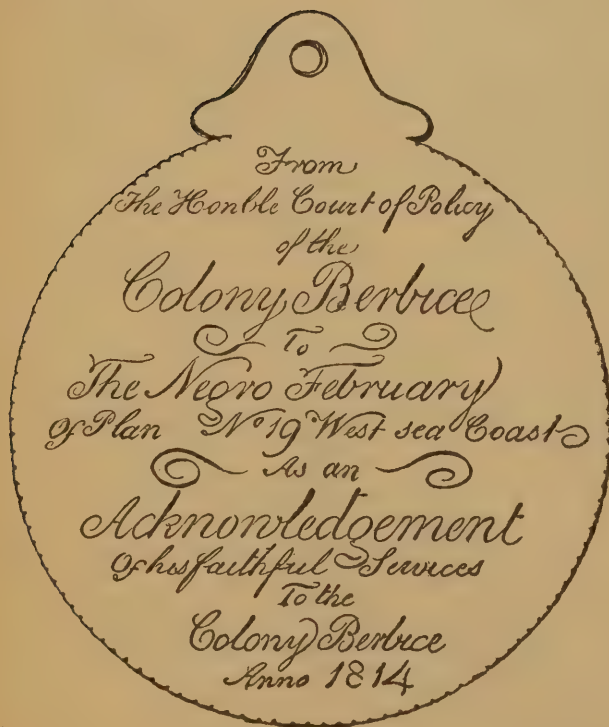 From
The Honble Court of Policy
of the
Colony Berbice
To
The Negro February
Of Plan No 19 West sea Coast
As an
Acknowledgement
Of his faithful Services
To the
Colony Berbice
Anno 1814